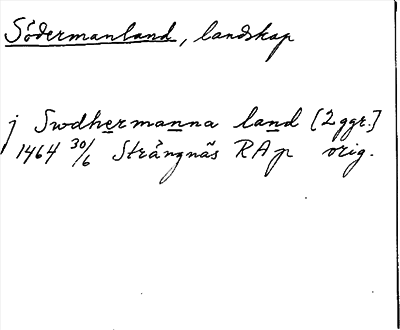 Södermanland, landskap
j Swdhermanna land [2 ggr.]
1464 30/6 Strängnäs RAp orig.